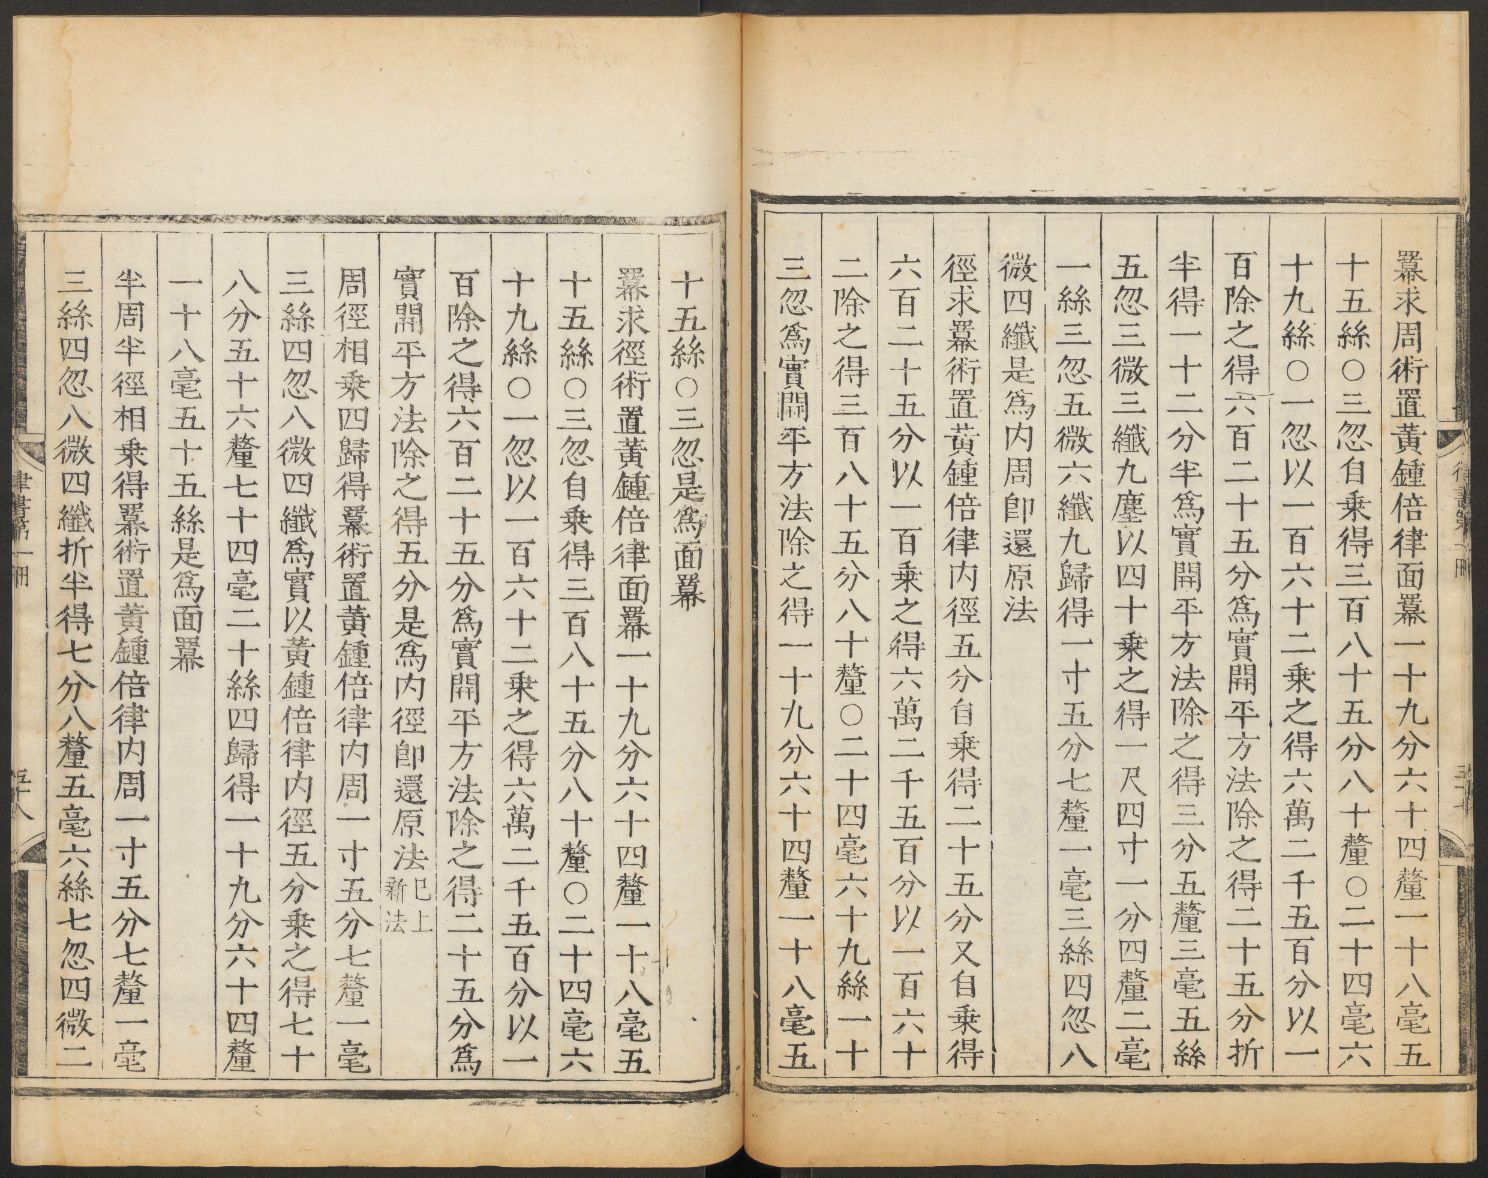 羃求周術置黃鍾倍律面羃一十九分六十四釐一十八毫五
十五絲〇三忽自乘得三百八十五分八十釐〇二十四毫六
十九絲〇一忽以一百六十二乘之得六萬二千五百分以一
百除之得六百二十五分爲實開平方法除之得二十五分折
半得一十二分半爲實開平方法除之得三分五釐三毫五絲
五忽三微三纖九塵以四十乘之得一尺四寸一分四釐二毫
一絲三忽五微六纖九歸得一寸五分七釐一毫三絲四忽八
微四纖是爲内周卽還原法
徑求羃術置黃鍾倍律内徑五分自乘得二十五分又自乘得
六百二十五分以一百乘之得六萬二千五百分以一百六十
二除之得三百八十五分八十釐〇二十四毫六十九絲一十
三忽爲實開平方法除之得一十九分六十四釐一十八毫五
十五絲〇三忽是爲面羃
羃求徑術置黃鍾倍律面羃一十九分六十四釐一十八毫五
十五絲〇三忽自乘得三百八十五分八十釐〇二十四毫六
十九絲〇一忽以一百六十二乘之得六萬二千五百分以一
百除之得六百二十五分爲實開平方法除之得二十五分爲
實開平方法除之得五分是爲内徑卽還原法已上
新法
周徑相乘四歸得羃術置黃鍾倍律内周一寸五分七釐一毫
三絲四忽八微四纖爲實以黃鍾倍律内徑五分乘之得七十
八分五十六釐七十四毫二十絲四歸得一十九分六十四釐
一十八毫五十五絲是爲面羃
半周半徑相乘得羃術置黃鍾倍律内周一寸五分七釐一毫
三絲四忽八微四纖折半得七分八釐五毫六絲七忽四微二
律書第一冊